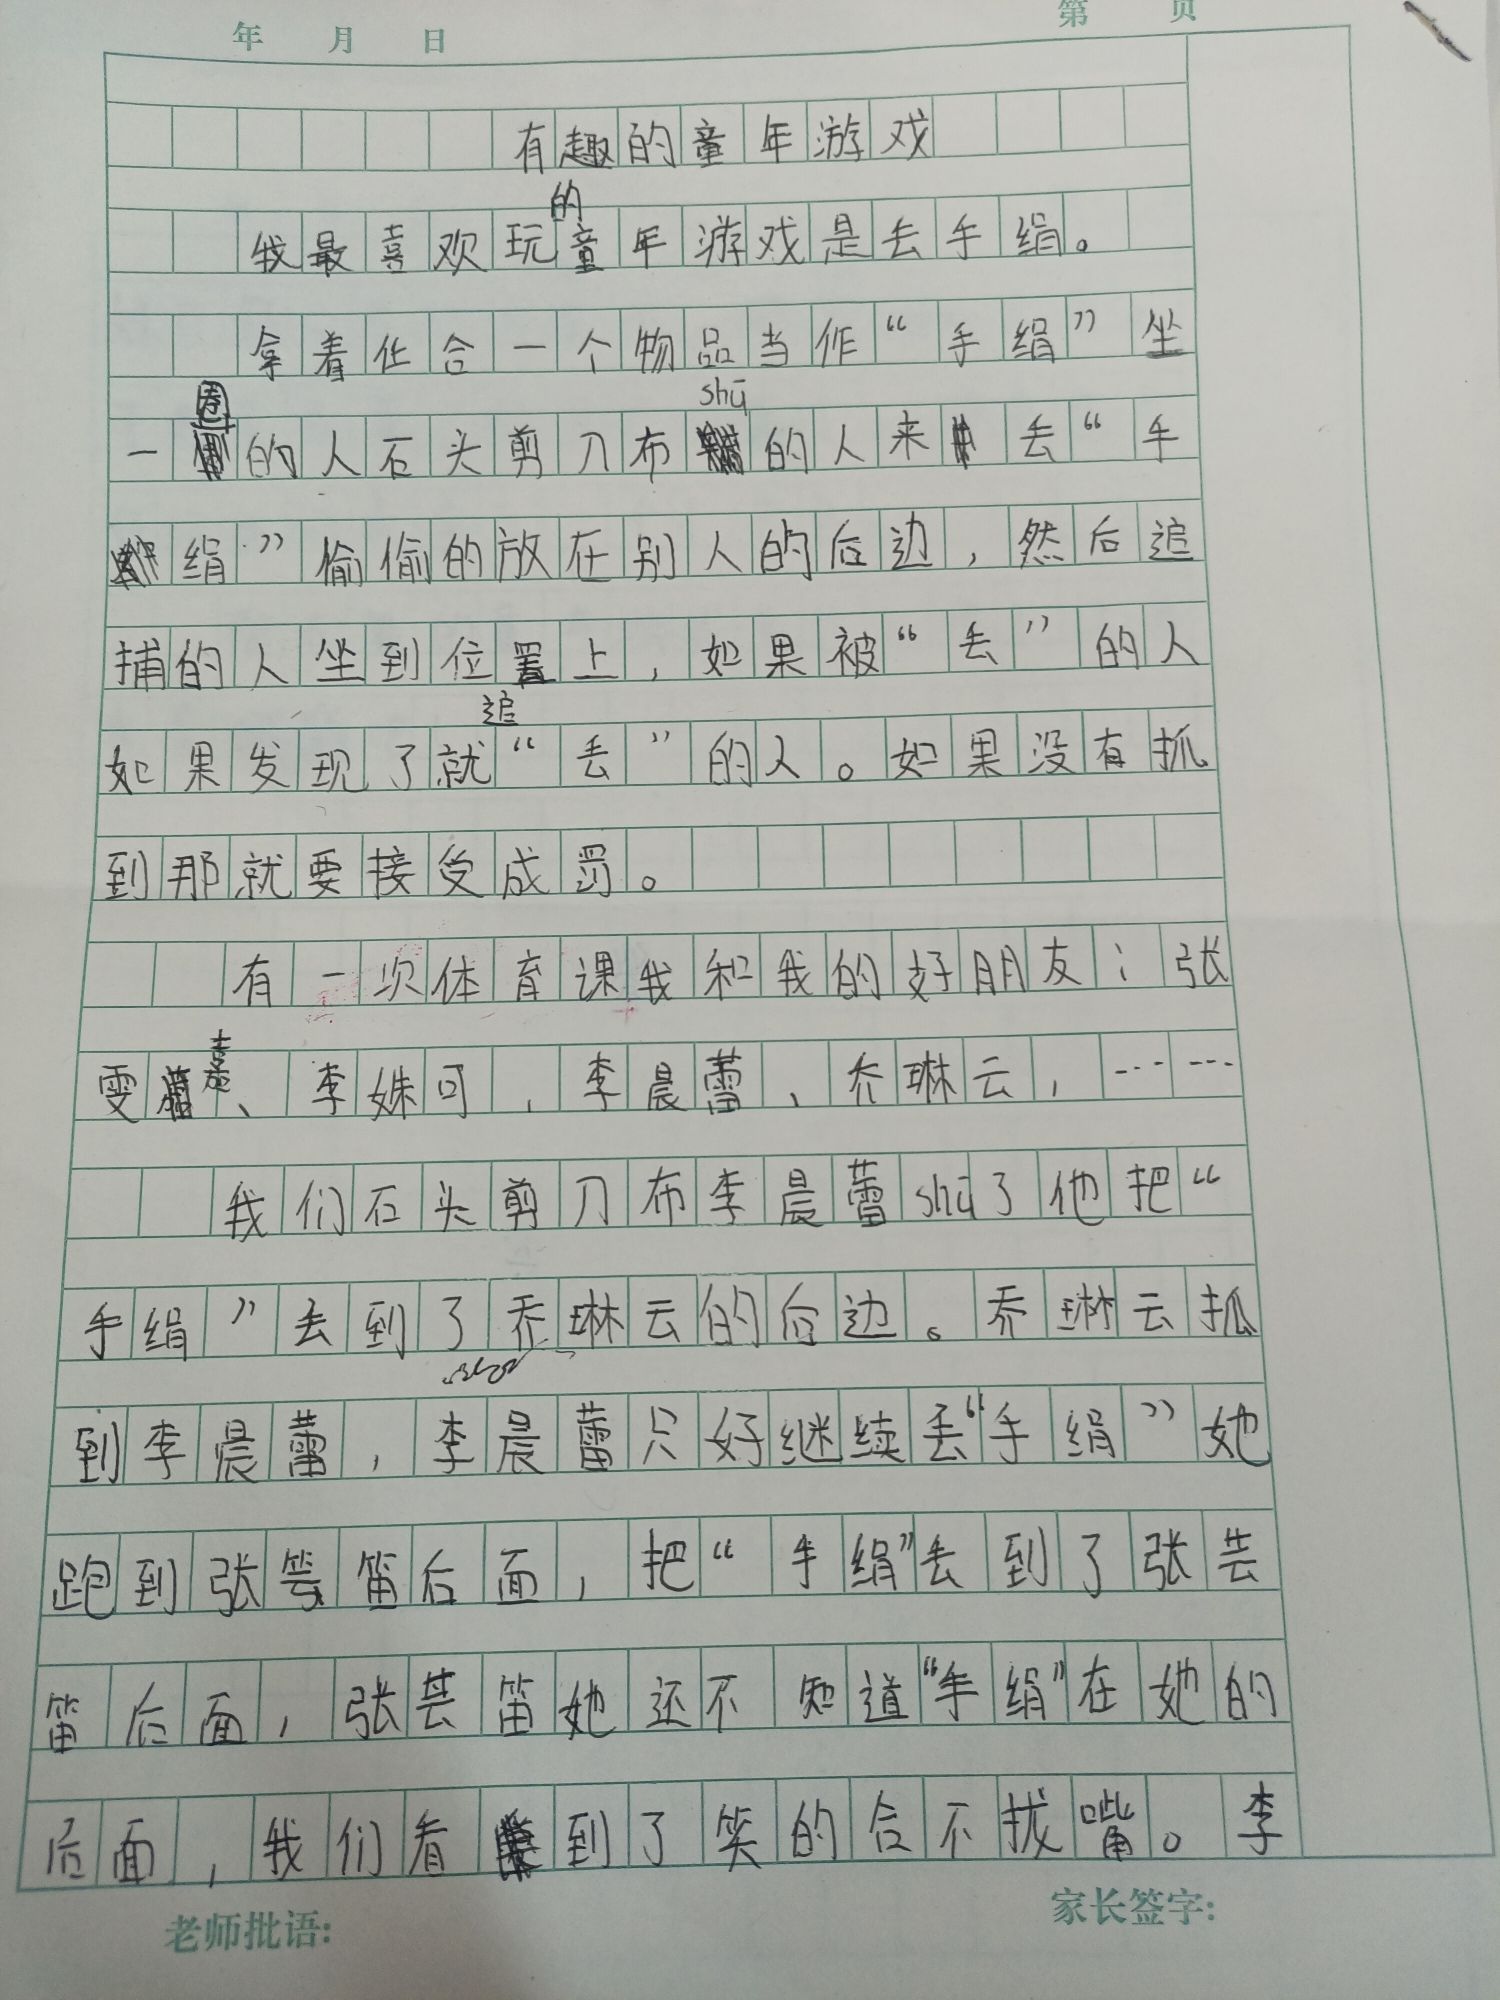 年 月 日 第 页
有趣的童年游戏
我最喜欢玩的童年游戏是丢手绢。
拿着任合一个物品当作“手绢”坐
一圈的人石头剪刀布shū的人来丢“手
绢”偷偷的放在别人的后边,然后追
捕的人坐到位置上,如果被“丢”的人
如果发现了就追“丢”的人。如果没有抓
到那就要接受成罚。
有一次体育课我和我的好朋友:张
雯嘉、李姝可,李晨蕾、乔琳云,……
我们石头剪刀布李晨蕾shū了他把“
手绢”丢到了乔琳云的后边。乔琳云抓
到李晨蕾,李晨蕾只好继续丢“手绢”她
跑到张芸笛后面,把“手绢”丢到了张芸
笛后面,张芸笛她还不知道“手绢”在她的
后面,我们看到了笑的合不拔嘴。李
老师批语: 家长签字: